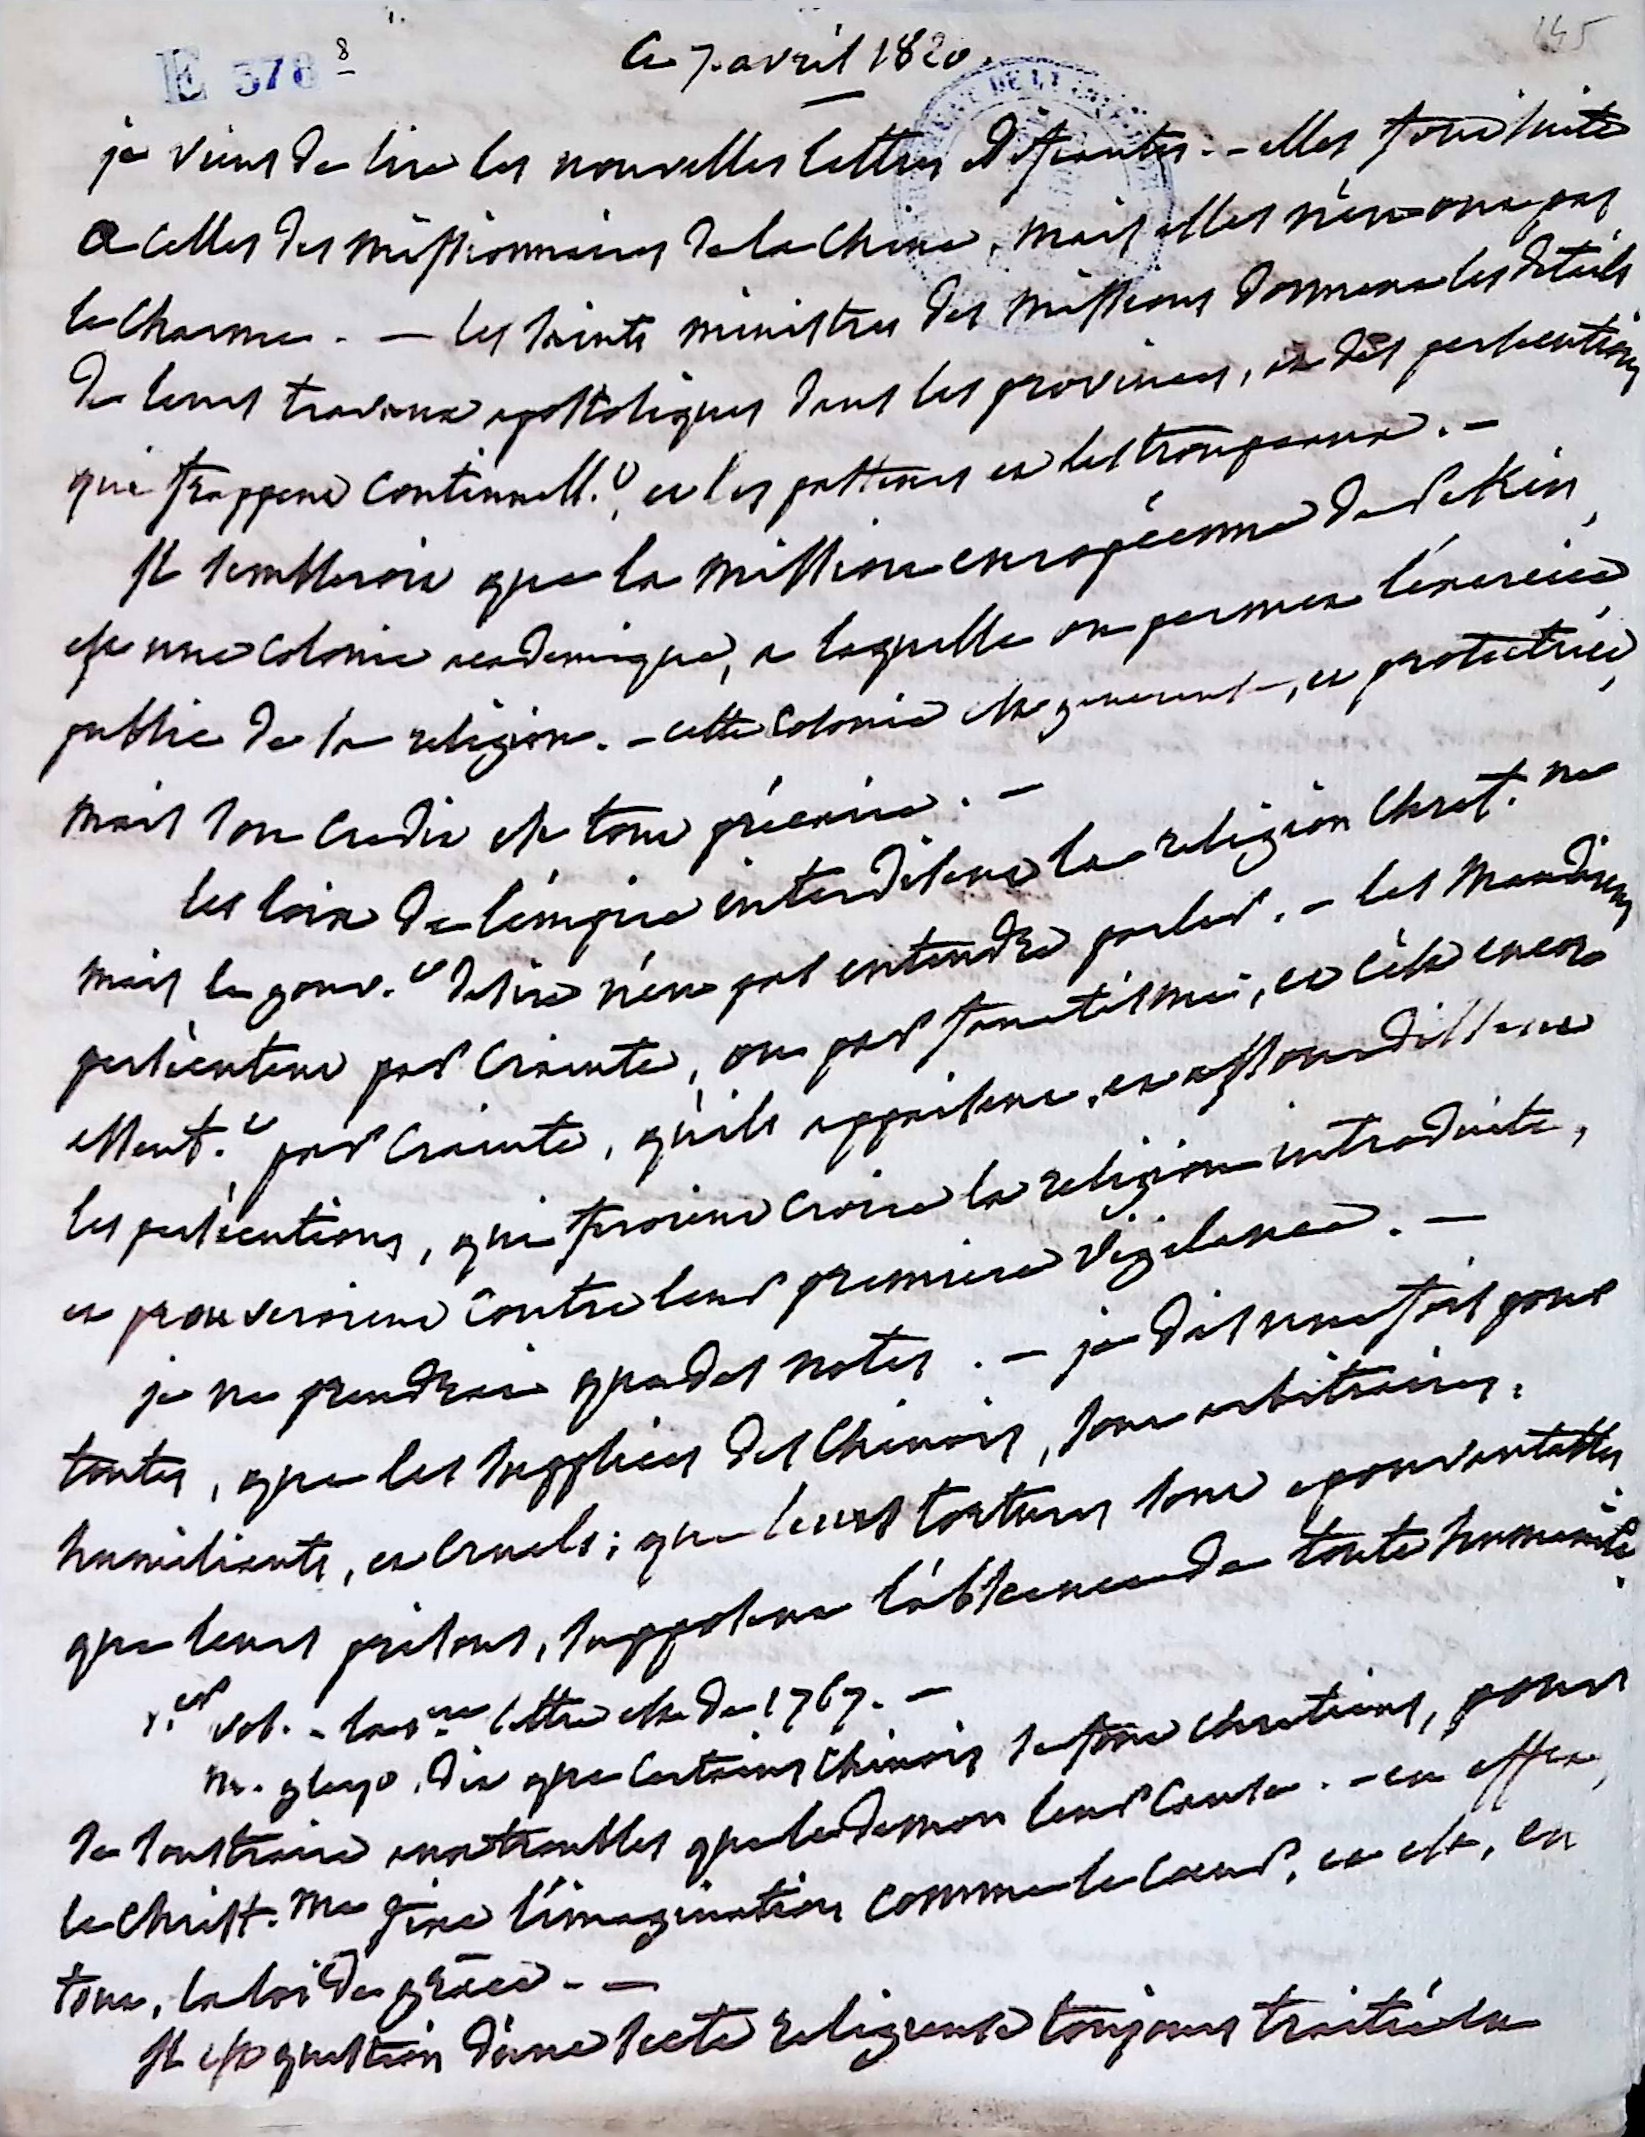 E 378 8
145
Ce 7. avril 1820.
je viens de lire les nouvelles lettres edifiantes. - elles font suite
a celles des missionnaires de la Chine, mais elles n'en ont pas
le charme. - les saints ministres des missions donnent les détails
de leurs travaux apostoliques dans les provinces, et des persecutions
qui frappent continuell.t, et les pasteurs et les troupeaux. -
Il sembleroit que la mission européenne de Pekin,
est une colonie academique, a laquelle on permet l'exercice
public de la religion. - cette colonie est genereuse, et protectrice,
mais son credit est tout précaire. -
les loix de l'empire interdisent la religion Chret.ne
mais le gouv.t desire n'en pas entendre parler. - les mandarins
persécutent par crainte, ou par fanatisme, et c'est encore
par crainte, qu'ils appaisent, et assourdissent
les persécutions, qui feroient croire la religion introduite,
et prouveroient contre leur premiere vigilance. -
je ne prendrai que des notes. - je dis une fois pour
toutes, que les supplices des Chinois, sont arbitraires,
humiliants, et cruels; que leurs tortures sont epouvantables
que leurs prisons, supposent l'absence de toute humanité.
1.er vol. - la 1.ere lettre est de 1767. -
M. gleyo, dit que certains Chinois se font chretiens, pour
se soustraire aux troubles que le demon leur cause. - en effet,
le Christ.me fixe l'imagination comme le cœur, et est, en
tout, la loi de grâce. -
Il est question d'une secte religieuse toujours traitée